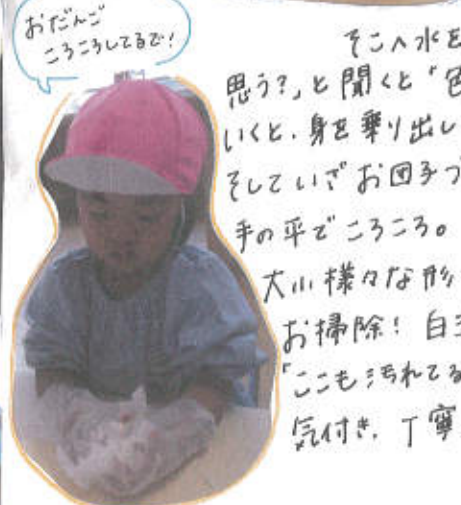 おだんご
ころころしてるで!
そこへ水を
思う?」と聞くと「色
いくと、身を乗り出し
そしていざお団子づ
手の平でころころ。
大小様々な形
お掃除! 白玉
「ここも汚れてる
気付き、丁寧